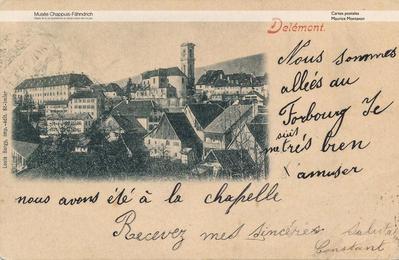 Musée Chappuis-Fähndrich
Cartes postales
Maurice Montavon
Delémont.
Nous sommes
alliés au
Vorbourg Je
suis
m très bien
amuser
nous avons été à la chapelle
Recevez mes sincères saluta
Constant